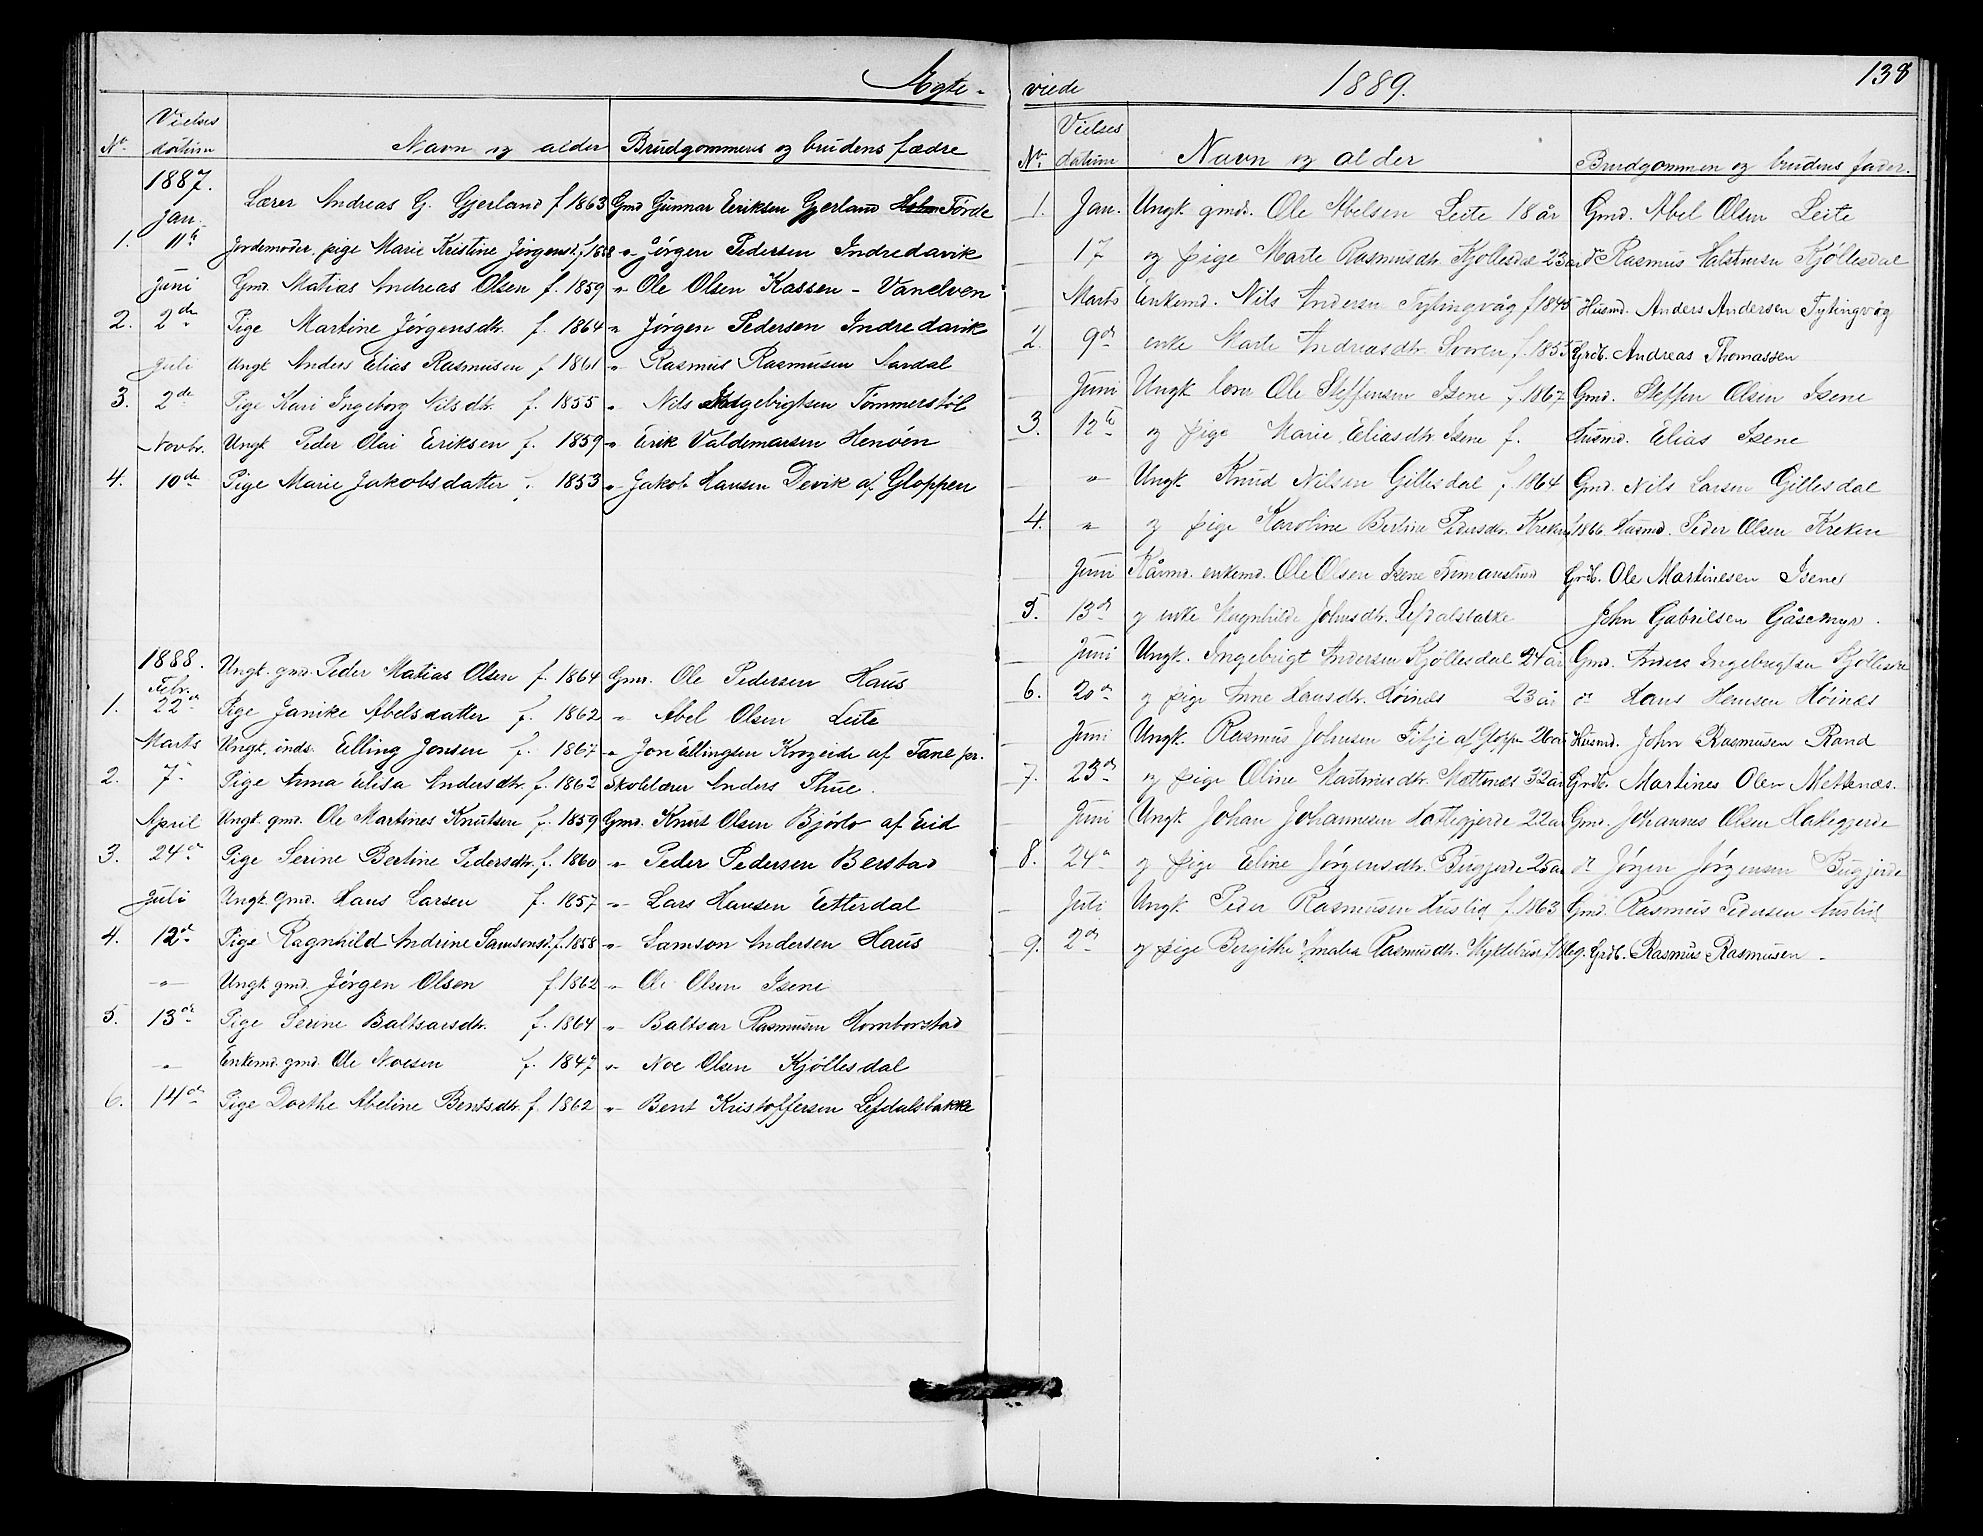 Ægte-
No. Vielses datum Navn og alder Brudgommens og brudens fædre
1887.
Jan. Lærer Andreas G. Gjerland f 1863 Gmd Gunnar Eriksen Gjerland Förde
1. 11te Jordemoder, pige Marie Kristine Jørgensd. " Jörgen Pedersen Indredavik
Juni Gmd. Matias Andreas Olsen f. 1859 " Ole Olsen Kassen - Vanelven
2. 2den Pige Martine Jörgensdtr. f. 1864 " Jörgen Pedersen Indredavik
Juli Ungk Anders Elias Rasmusen f 1861 " Rasmus Rasmusen Sardal
3. 2de Pige Kari Ingeborg Nilsdtr. f. 1855 " Nils Tömmerstöl
Novbr. Ungk Peder Olai Eriksen f. 1859 " Erik Valdemarsen Henöen
4. 10de Pige Marie Jakobsdatter f. 1853 " Jakob Hansen Devik af Gloppen
1888. Ungk. gmd. Peder Matias Olsen f. 1864 Gmd. Ole Pedersen Haus
Febr.
1. 22de Pige Janike Abelsdatter f. 1862 " Abel Olsen Leite
Marts Ungk. inds. Elling Jonsen f. 1867 " Jon Ellingsen Krogeide af Fane pr.
2. 7 Pige Anna Elisa Andersdtr. f. 1862 Skolelærer Anders Thue.
April Ungk. gmd. Ole Martines Knutsen f. 1859 Gmd. Knut Olsen Bjørlo af Eid
3. 24de Pige Serine Bertine Pedersdtr. f. 1860 " Peder Pedersen Berstad
Juli Ungk. Gmd. Hans Larsen f. 1857 " Lars Hansen Eetterdal
4. 12te Pige Ragnhild Andrine Samsonsd. f. 1858 " Samson Andersen Haus
" Ungk gmd. Jörgen Olsen f 1862 " Ole Olsen Isene
5. 13de Pige Serine Baltsarsdtr. f. 1864 " Baltsar Rasmusen Homborstad
" Enkemd. gmd. Ole Noesen f. 1847 " Noe Olsen Kjöllesdal
6. 14de Pige Dorthe Abeline Bentsdtr f. 1862 " Bent Kristoffersen Lefdalsbakke
viede 1889. 138
No. Vielses datum Navn og alder Brudgommen og brudens fader.
1. Jan. Ungk. gmd. Ole Abelsen Leite 18 år Gmd. Abel Olsen Leite
17 og pige Marte Rasmusdtr. Kjöllesdal 23 år do Rasmus Kjöllesdal
Marts Enkemd. Nils Andersen Tytingvåg f 1845 Husmd. Anders Andersen Tytingvåg
2. 9de enke Marte Andreasdtr. f. 1855 Grdb. Andreas Thomassen
Juni Ungk Ole Steffensen Isene f. 1867 Gmd. Steffen Olsen Isene
3. 12te og pige Marie Eliasdtr. Isene f. Husmd. Elias Isene
" Ungk. Knud Nilsen Gillesdal f. 1864 Gmd. Nils Larsen Gillesdal
4. " og pige Karoline Bertine Pedersdtr. Kreken f 1866 Husmd. Peder Olsen Kreken
Juni Kårmd. enkemd. Ole Olsen Isene Grdb. Ole Martinesen Isene
5. 13de og enke Magnhilde Johnsdtr. Lefdalsbakke John Gabrielsen Gåsemyr.
Juni Ungk. Ingebrigt Andersen Kjöllesdal 24 år Gmd. Anders Ingebrigtsen Kjöllesdal
6. 20de og pige Anne Hansdtr. Höines 23 år do Hans Hansen Höines
Juni Ungk. Rasmus Johnsen Fitje af Gloppen 26 år Husmd. John Rasmusen Rand
7. 23de og pige Oline Martinusdtr. Mettenes 32 år Grdb. Martines Olsen Mettenæs.
Juni Ungk Johan Johannesen Hakegjerde 22 år Gmd. Johannes Olsen Hakegjerde
8. 24de og pige Eline Jörgensdtr. Bugjerde 25 år do Jörgen Jörgensen Bugjerde
Juli Ungk. Peder Rasmusen Huslid f. 1863 Gmd. Rasmus Pedersen Huslid
9. 2de og pige Bergithe Amalia Rasmusdtr. Myklebust Grdb. Rasmus Rasmusen